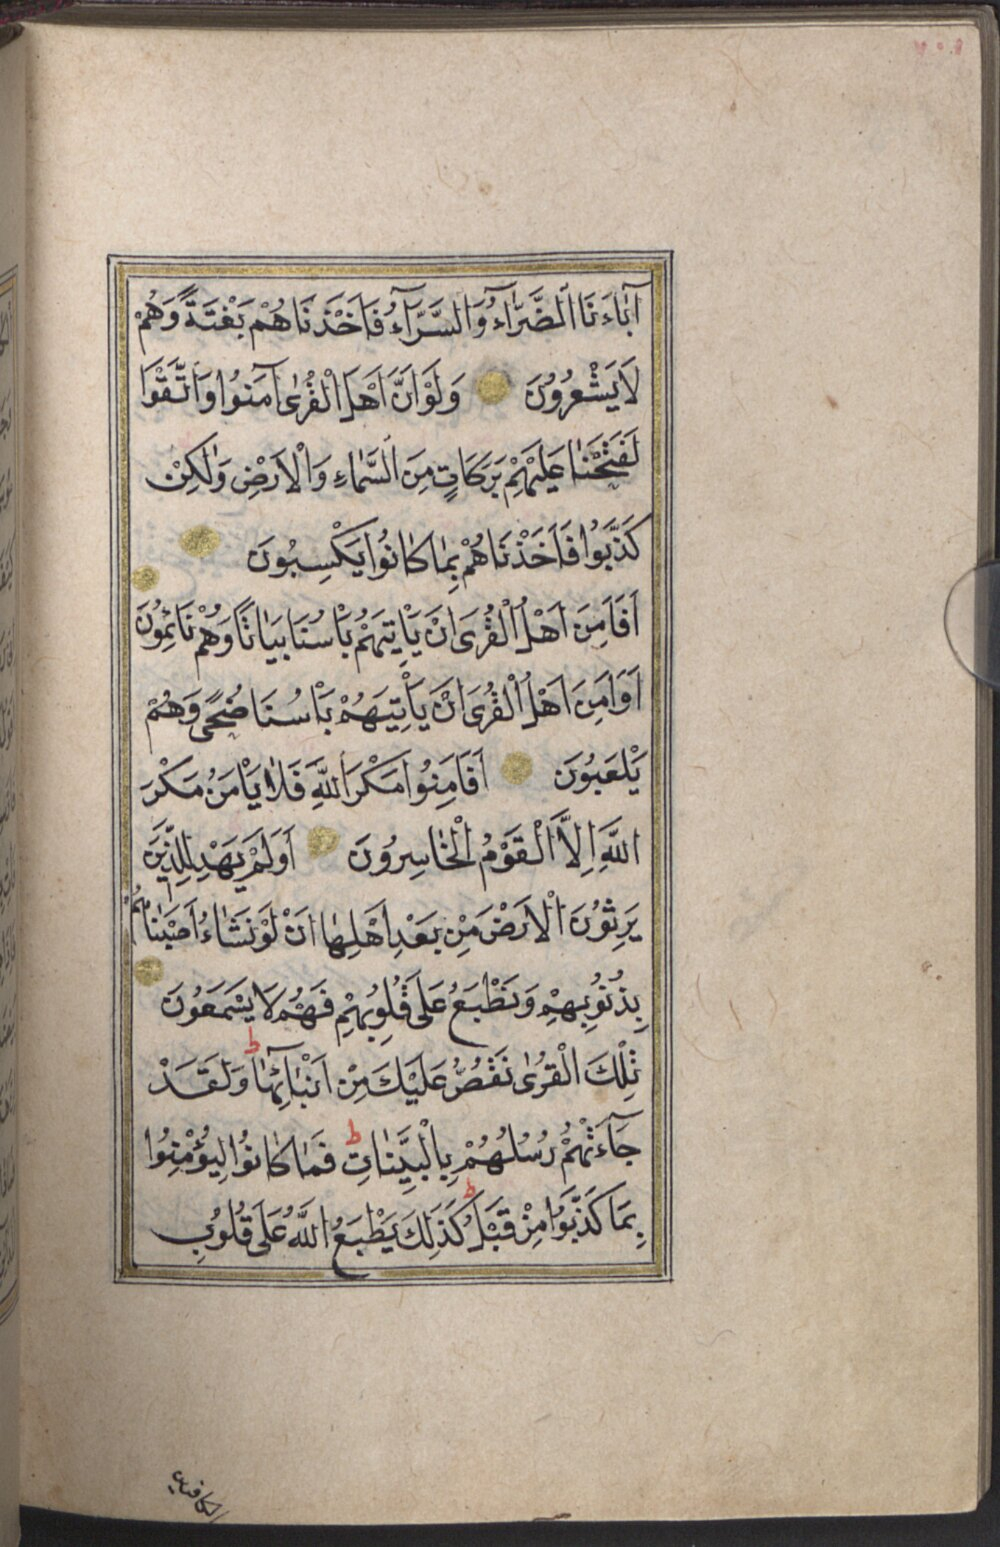 آبَاءَنَا الضَّرَّآءُ وَالسَّرَّآءُ فَاَخَذْنَاهُمْ بَغْتَةً وَهُمْ
لَا يَشْعُرُونَ وَلَوْ اَنَّ اَهْلَ الْقُرٰى آمَنُوا وَاتَّقَوْا
لَفَتَحْنَا عَلَيْهِمْ بَرَكَاتٍ مِنَ السَّمَاءِ وَالْاَرْضِ وَلٰكِنْ
كَذَّبُوا فَاَخَذْنَاهُمْ بِمَا كَانُوا يَكْسِبُونَ
اَفَاَمِنَ اَهْلُ الْقُرَى اَنْ يَاْتِيَهُمْ بَاْسُنَا بَيَاتًا وَهُمْ نَائِمُونَ
اَوَاَمِنَ اَهْلُ الْقُرَى اَنْ يَاْتِيَهُمْ بَاْسُنَا ضُحًى وَهُمْ
يَلْعَبُونَ اَفَاَمِنُوا مَكْرَ اللّٰهِ فَلَا يَاْمَنُ مَكْرَ
اللّٰهِ اِلَّا الْقَوْمُ الْخَاسِرُونَ اَوَلَمْ يَهْدِ لِلَّذِينَ
يَرِثُونَ الْاَرْضَ مِنْ بَعْدِ اَهْلِهَا اَنْ لَوْ نَشَاءُ اَصَبْنَاهُمْ
بِذُنُوبِهِمْ وَنَطْبَعُ عَلَى قُلُوبِهِمْ فَهُمْ لَا يَسْمَعُونَ
تِلْكَ الْقُرٰى نَقُصُّ عَلَيْكَ مِنْ اَنْبَآئِهَا ط وَلَقَدْ
جَآءَتْهُمْ رُسُلُهُمْ بِالْبَيِّنَاتِ ط فَمَا كَانُوا لِيُؤْمِنُوا
بِمَا كَذَّبُوا مِنْ قَبْلُ ط كَذٰلِكَ يَطْبَعُ اللّٰهُ عَلَى قُلُوبِ
الكافرين